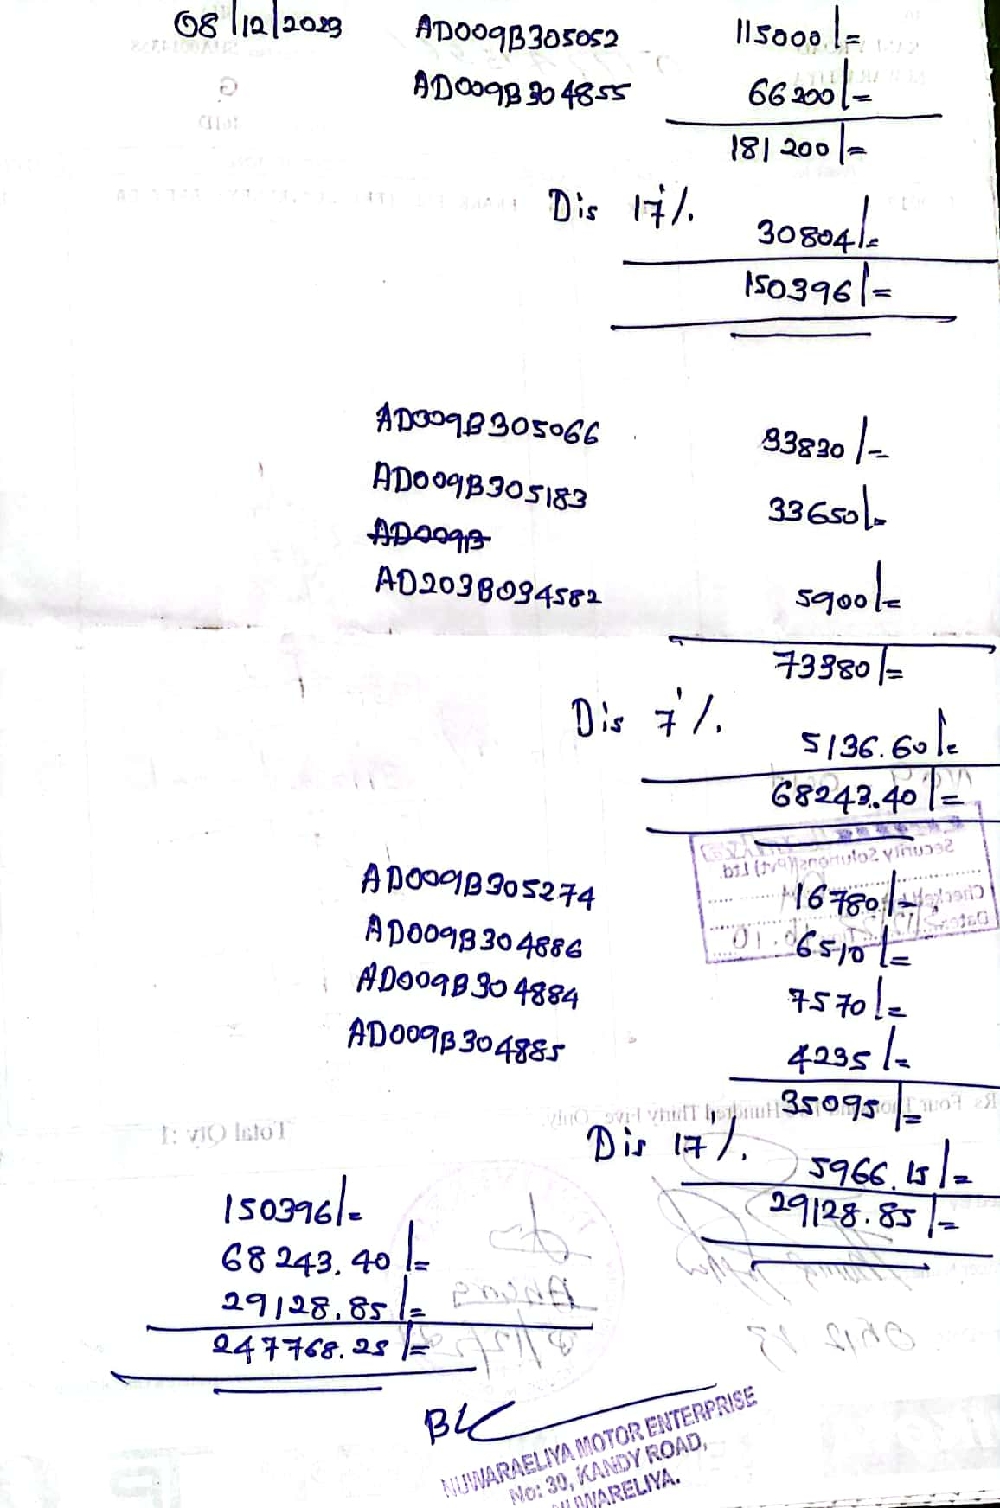 08/12/2023 AD009B305052 115000/=
AD009B304855 66200/=
181200/=
Dis 17%. 30804/=
150396/=
AD009B305066 33830/=
AD009B305183 33650/=
AD009B
AD203B034582 5900/=
73380/=
Dis 7%. 5136.60/=
68243.40/=
Security Solutions (Pvt) Ltd.
AD009B305274 16780/=
AD009B304886 6510/=
AD009B304884 7570/=
AD009B304885 4235/=
35095/=
Total Qty :1
Dis 17%. 5966.15/=
29128.85/=
150396/=
68243.40/=
29128.85/=
247768.25/=
NUWARAELIYA MOTOR ENTERPRISE
No: 39, KANDY ROAD,
NUWARELIYA.